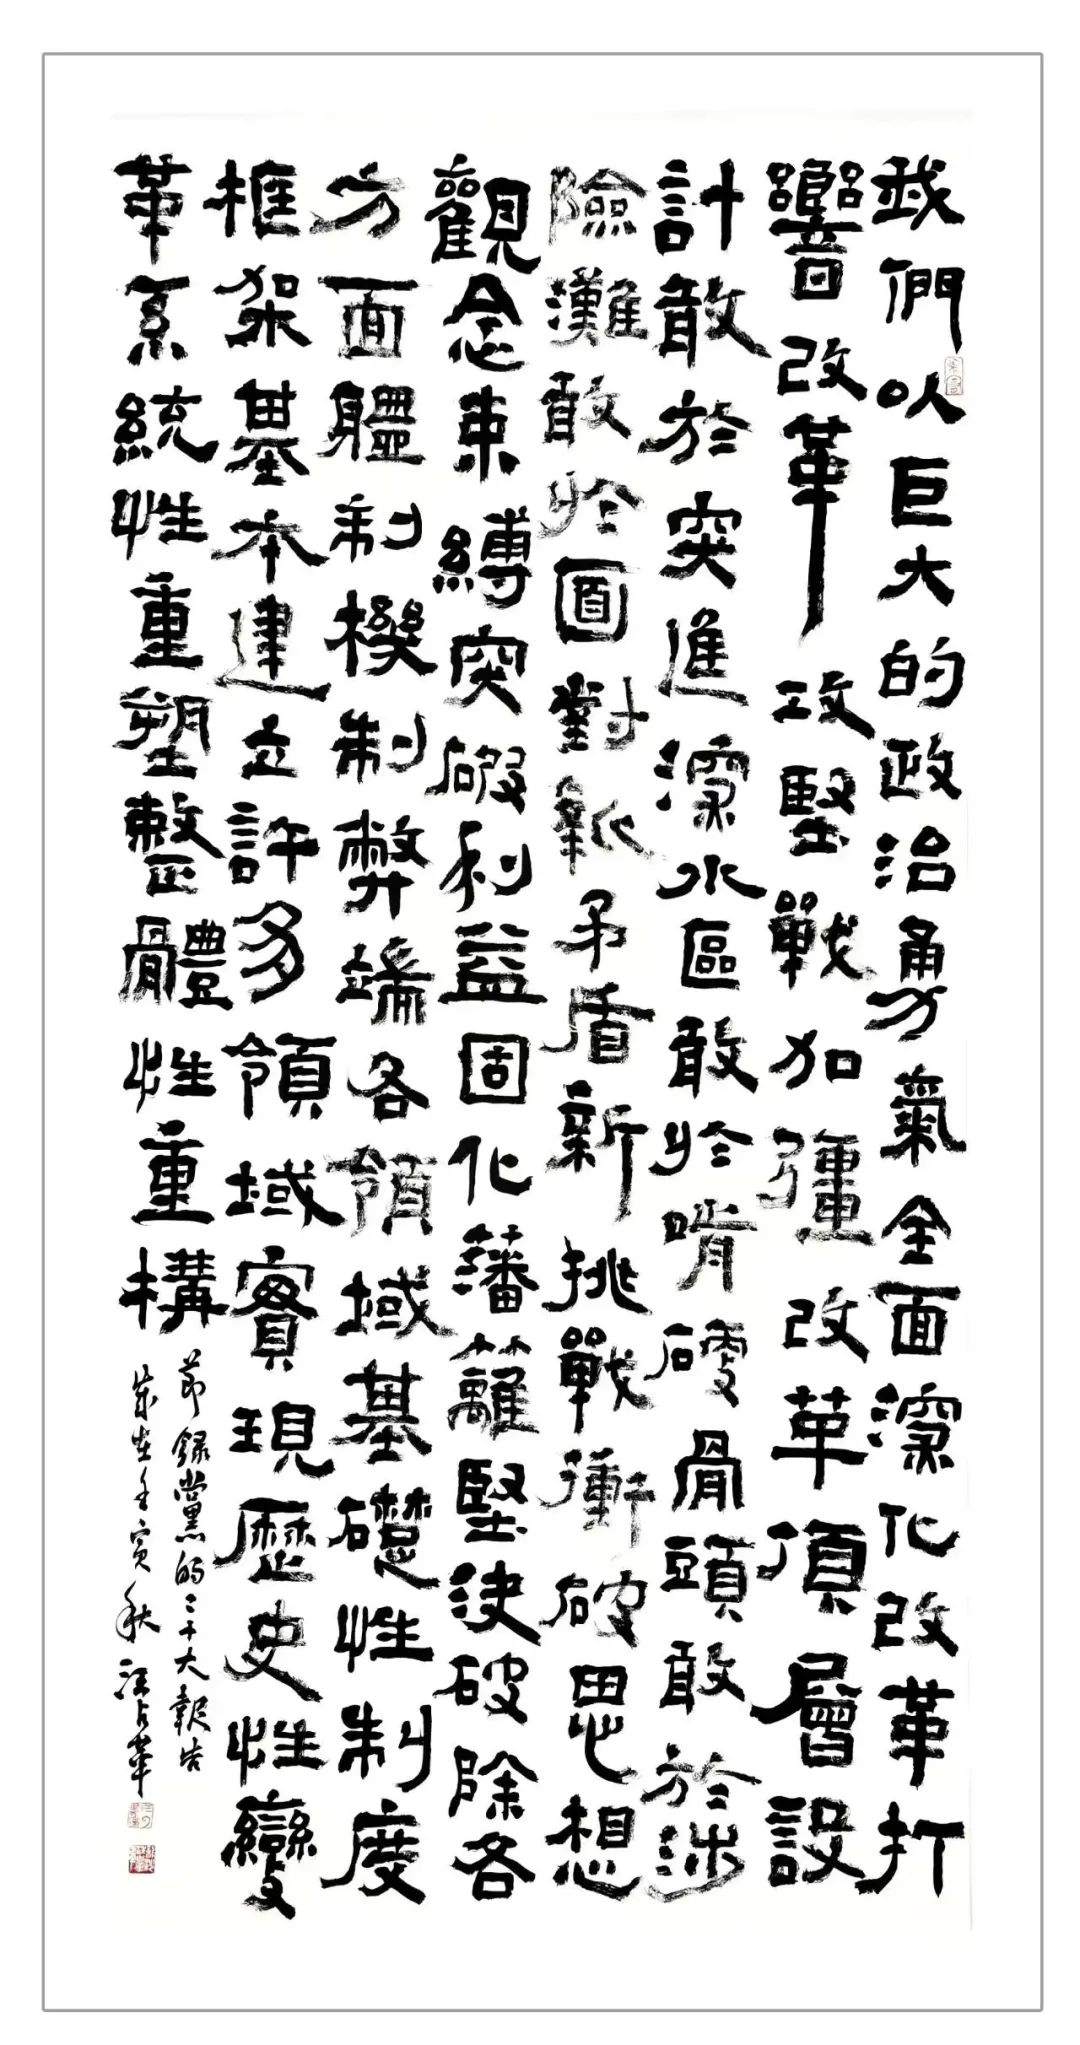 我們以巨大的政治勇氣全面深化改革打
響改革攻堅戰加強改革頂層設
計敢於突進深水區敢於啃硬骨頭敢於涉
險灘敢於面對新矛盾新挑戰衝破思想
觀念束縛突破利益固化藩籬堅決破除各
方面體制機制弊端各領域基礎性制度
框架基本建立許多領域實現歷史性變
革系統性重塑整體性重構
節錄黨的二十大報告
歲在壬寅秋汪占華